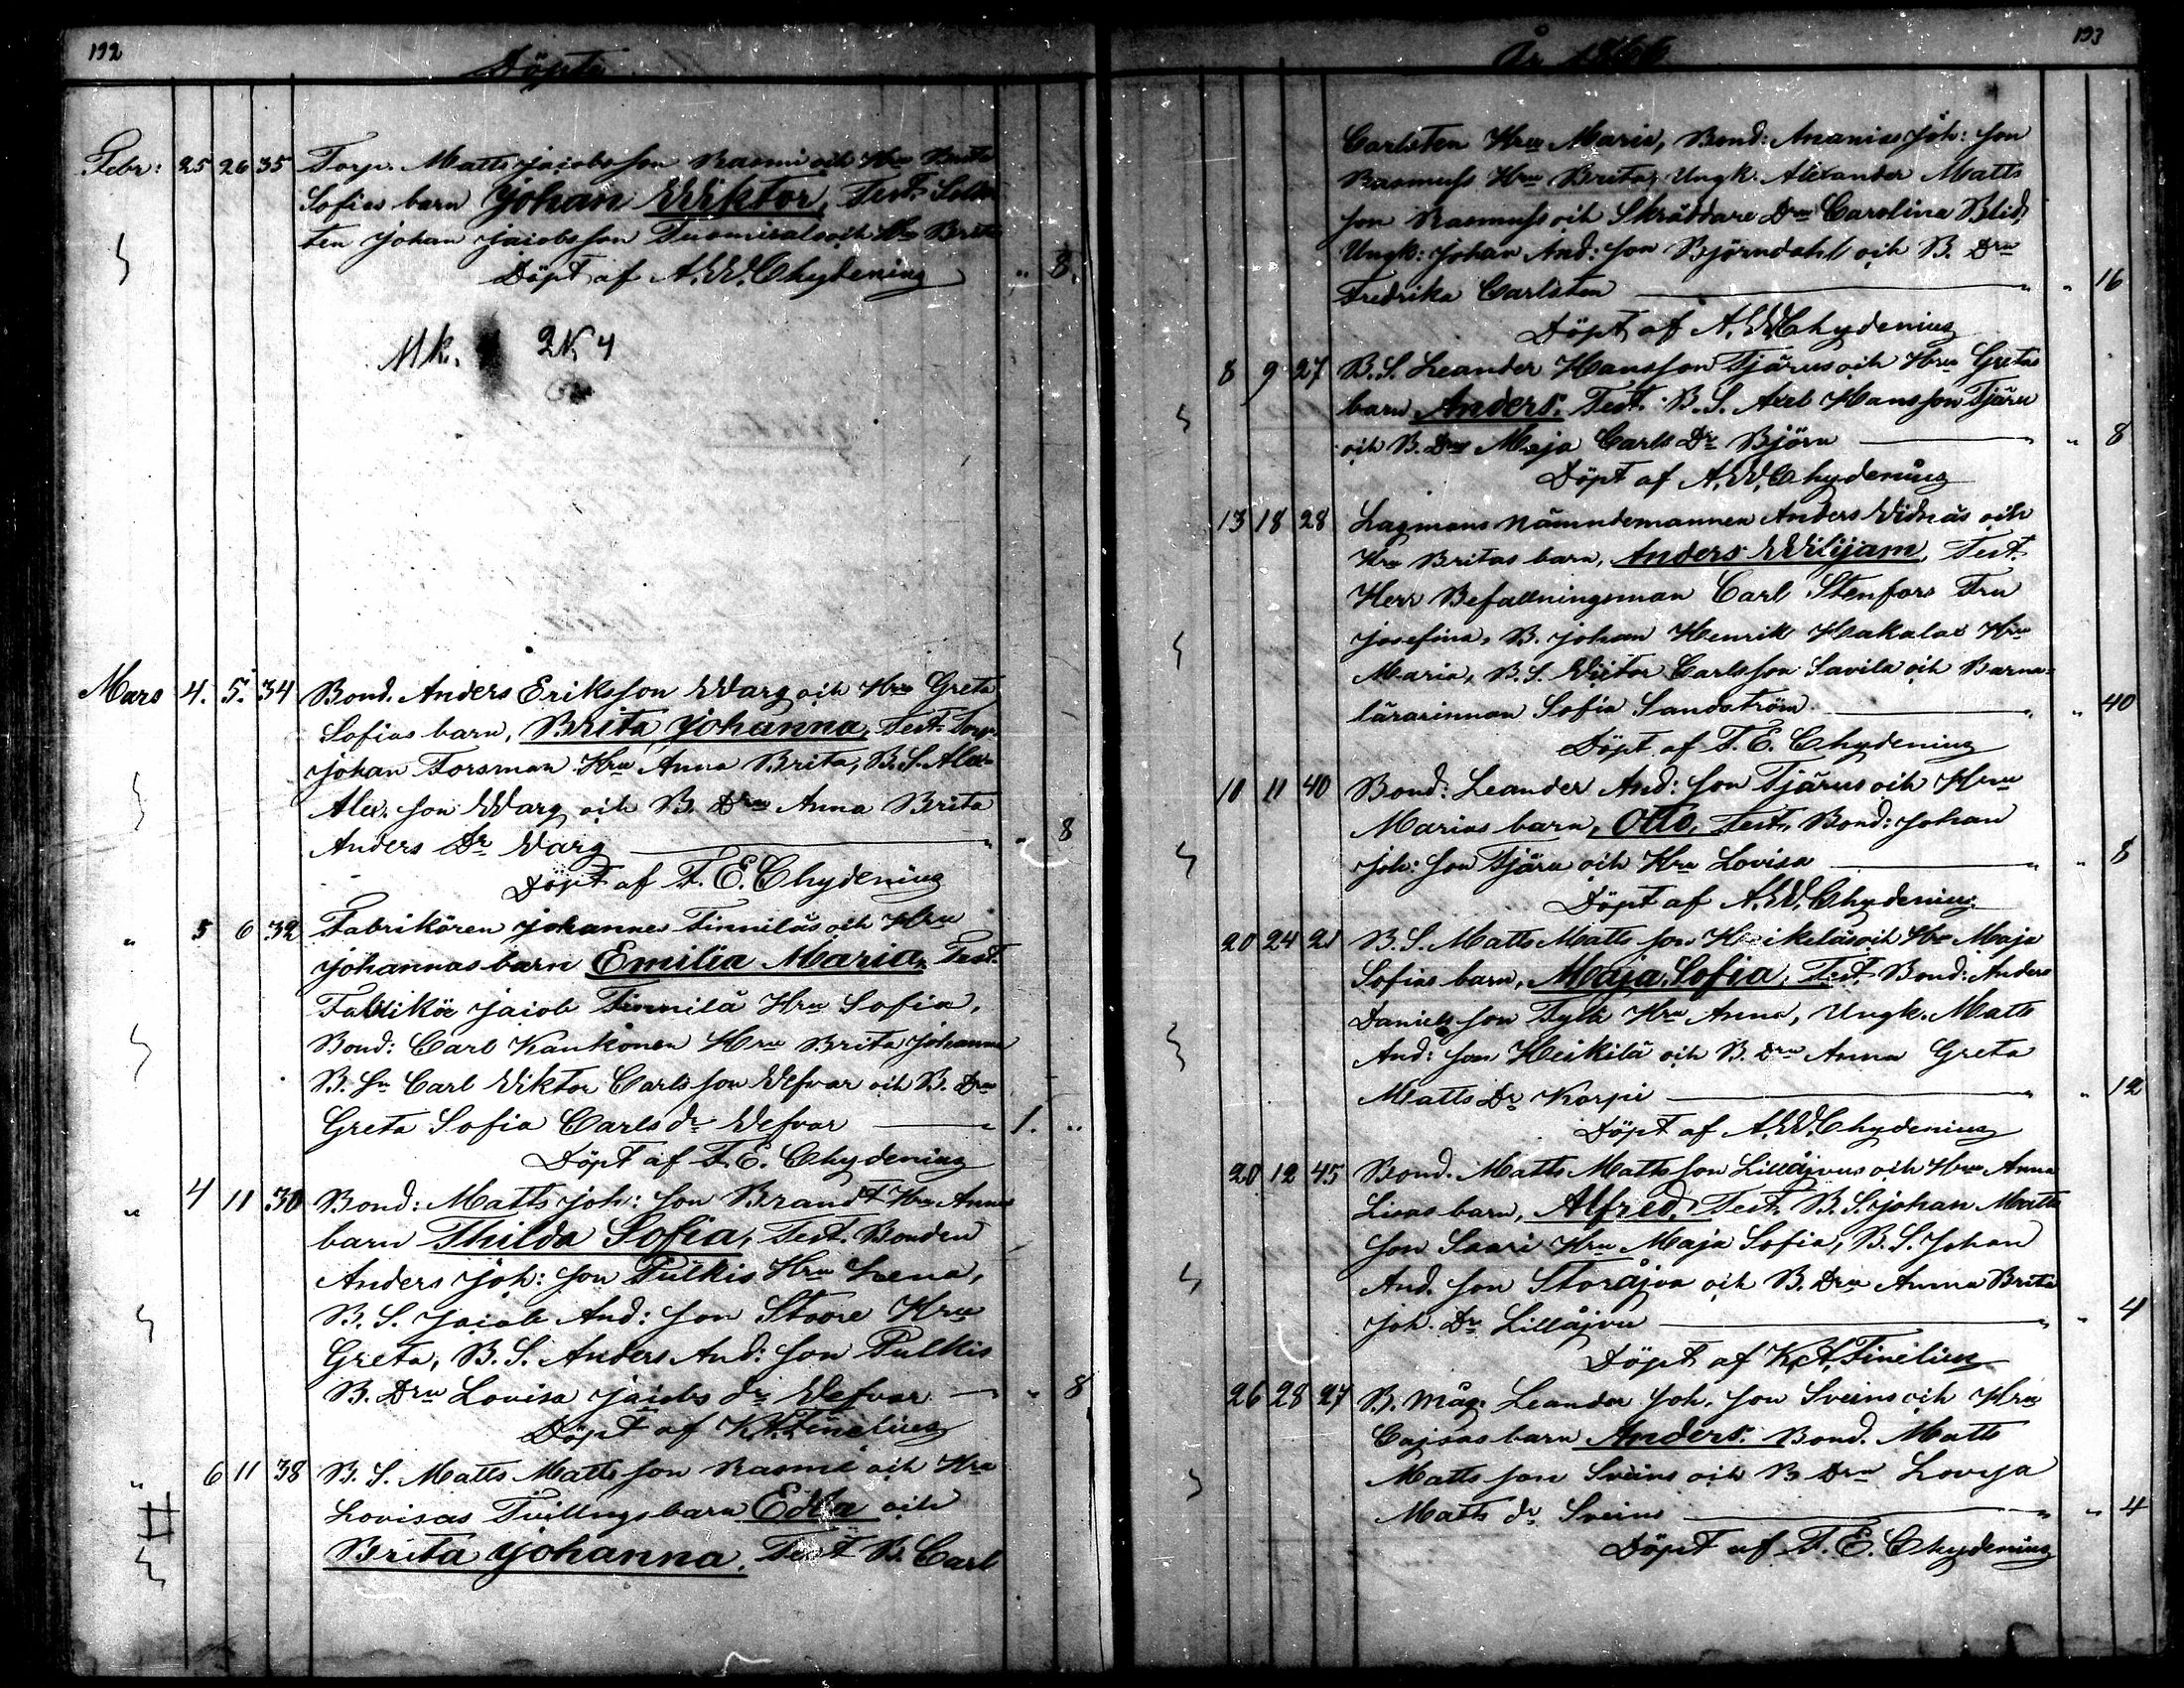 192
Döpte
Febr: 25 26 35 Torp. Matts Jacobsson Rasmi och Hru Brita
Sofias barn Johan Wiktor, Test.
ten Johan Jacobsson och Hru Brita
Döpt af A. W. Chydenius " 8.
Mk. 4
Mars 4. 5. 34 Bond. Anders Eriksson Warg och Hru Greta
Sofias barn, Brita Johanna, Test. Torp.
Johan Forsman Hru Anna Brita, B. S. Alex
Alex. son Warg och B. Dru Anna Brita
Anders Dr Warg " " 8
Döpt af F. E. Chydenius
" 5 6 32 Fabrikören Johannes Finniläs och Hru
Johannas barn Emilia Maria, Test.
Fabrikör Jacob Finnilä Hru Sofia,
Bond: Carl Kankonen Hru Brita Johanna
B. Sn Carl Viktor Carlsson Wefvar och B. Dru
Greta Sofia Carls dr Wefvar " 1. "
Döpt af F. E. Chydenius
" 4 11 30 Bond: Matts Joh: son Brandt Hru Annas
barn Thilda Sofia, Test. Bonden
Anders Joh: son Pulkis Hru Lena,
B. S. Jacob And: son Stoore Hru
Greta, B. S. Anders And: son Pulkis
B. Dru Lovisa Jacobs dr Wefvar " 8
Döpt af K. A. Finelius
" 6 11 38 B. S. Matts Matts son Rasmi och Hru
Lovisas Tvillingsbarn Edla och
Brita Johanna, Test B. Carl
193
År 1866
Carlsten Hru Maria, Bond: Ananias Joh: son
Rasmuss Hru Brita, Ungk. Alexander Matts
son Rasmuss och Skräddare Dru Carolina Blid,
Ungk: Johan And: son Björndahl och B. Dru
Fredrika Carlsten " " 16
Döpt af A. W. Chydenius
8 9 27 B. S. Leander Hansson Tjärus och Hru Gretas
barn Anders. Test. B. S. Axel Hansson Tjäru
och B. Dru Maja Carls Dr Björn " " 8
Döpt af A. W. Chydenius
13 18 28 Lagmans nämndemannen Anders Widnäs och
Hru Britas barn, Anders Wiljam, Test.
Herr Befallningsman Carl Stenfors Fru
Josefina, B. Johan Henrik Hakalax Hru
Maria, B. S. Victor Carlsson Savila och Barna=
lärarinnan Sofia Sandström " " 40
Döpt af F. E. Chydenius
10 11 40 Bond: Leander And: son Tjärus och Hru
Marias barn, Otto, Test. Bond: Johan
Joh: son Tjäru och Hru Lovisa " " 8
Döpt af A. W. Chydenius
20 24 21 B. S. Matts Matts son Heikeläs och Hru Maja
Sofias barn, Maja Sofia, Test. Bond: Anders
Daniels son Hru Anna, Ungk. Matts
And: son Heikilä och B. Dru Anna Greta
Matts Dr Korpi " " 12
Döpt af A. W. Chydenius
20 12 45 Bond. Matts Mattsson Lillåjvus och Hru Anna
Lisas barn, Alfred, Test. B. S. Johan Matts
son Saari Hru Maja Sofia, B. S. Johan
And. son Storåjva och B. Dru Anna Brita
Joh. Dr Lillåjvu " " 4
Döpt af K. A. Finelius
26 28 27 B. Måg. Leander Joh. son Sveins och Hru
Cajsas barn Anders. Bond. Matts
Matts son Sveins och B. Dru Lovisa
Matts dr Sveins " " 4
Döpt af F. E. Chydenius